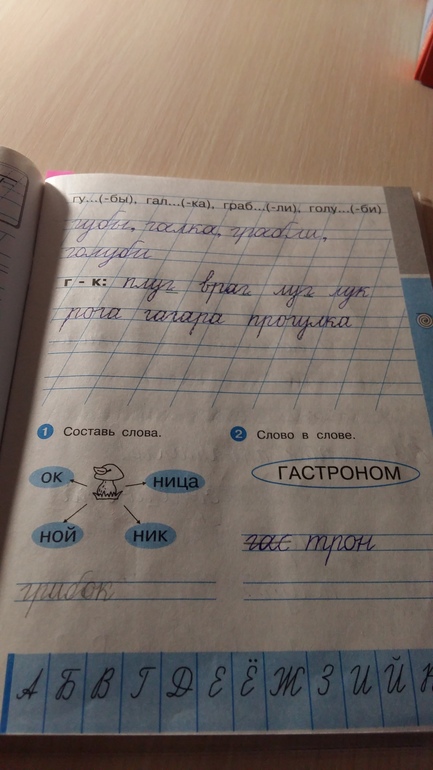 гу...(-бы), гал...(-ка), граб...(-ли), голу...(-би)
губы, галка, грабли,
голуби
г - к: плуг враг луг лук
рога гагара прогулка
1 Составь слова.
ок
ница
ной
ник
грибок
2 Слово в слове.
ГАСТРОНОМ
трон
А Б В Г Д Е Ё Ж З И Й